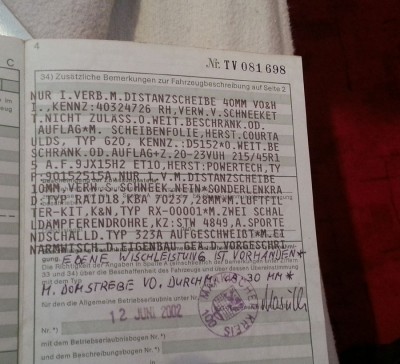 4
Nr. TV 081698
34) Zusätzliche Bemerkungen zur Fahrzeugbeschreibung auf Seite 2
NUR I.VERB.M.DISTANZSCHEIBE 40MM VO&H
I.,KENNZ:40324726 RH,VERW.V.SCHNEEKET
T.NICHT ZULASS.O.WEIT.BESCHRÄNK.OD.
AUFLAG*M. SCHEIBENFOLIE,HERST.COURTA
ULDS, TYP G20, KENNZ.:D5152*O.WEIT.BE
SCHRÄNK.OD.AUFLAG+Z.20-23VUH 215/45R1
5 A.F.9JX15H2 ET10,HERST:POWERTECH,TY
P:90152S15A,NUR I.V.M.DISTANZSCHEIBE
10MM,VERW.S.SCHNEEK.NEIN*SONDERLENKRA
D.TYP RAID18,KBA 70237,28MM*M.LUFTFIL
TER-KIT,K&N,TYP RX-00001*M.ZWEI SCHAL
LDÄMPFERENDROHRE,KZ:STW 4849,A.SPORTE
NDSCHALLD.TYP 323A AUFGESCHWEIßT*M.EI
NARMWISCH.D.EIGENBAU GEÄ.D.VORGESCHRI
EBENE WISCHLEISTUNG IST VORHANDEN*
Die Richtigkeit der Angaben in Spalte A
33 und 34) über die Beschaffenheit des Fahrzeugs und über dessen Übereinstimmung
M. DOMSTREBE VO. DURCHM. CA. 30 MM*
für den die Allgemeine Betriebserlaubnis unter
12. JUNI 2002
Nr. *)
mit dem Betriebserlaubnisbogen Nr. *)
und dem Beschreibungsbogen Nr. *)